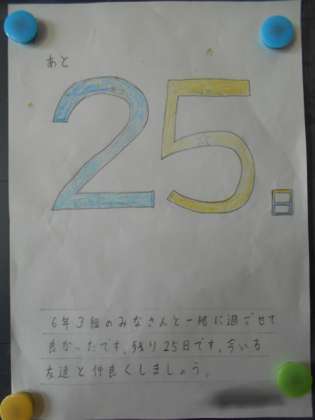 あと
25日
6年3組のみなさんと一緒に過ごせて
良かったです。残り25日です。今いる
友達と仲良くしましょう。